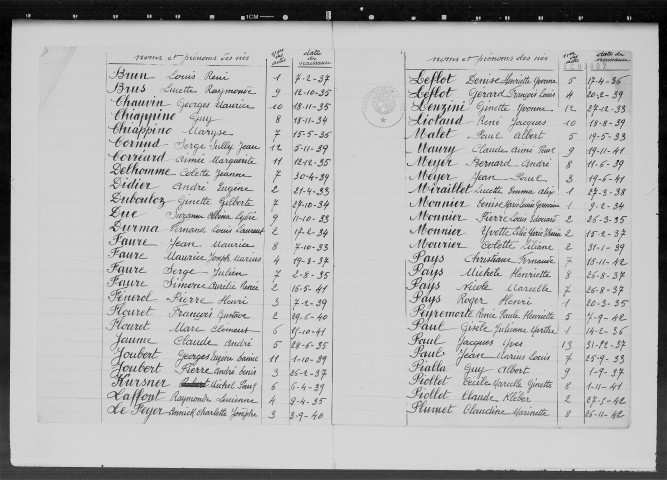 1CM
noms et prénoms des nés nos des actes date de naissance
Brun Louis René 1 7-2-37
Brus Lucette Raymonde 9 12-10-35
Chauvin Georges Maurice 10 18-11-35
Chiappino Guy 8 18-11-34
Chiappino Maryse 7 15-5-36
Cornud Serge Jully Jean 12 5-11-39
Corréard Aimée Marguerite 11 12-12-35
Delhomme Colette Jeanne 7 30-4-39
Didier André Eugène 2 21-4-33
Dubouloz Ginette Gilberte 7 27-10-34
Duc Suzanne 9 11-10-33
Durma Fernand Louis Laurent 2 17-2-34
Faure Jean Maurice 8 7-10-33
Faure Maurice Joseph Marius 4 19-3-37
Faure Serge Julien 7 2-8-35
Faure Simone Aurélie Renée 2 16-5-41
Finerol Pierre Henri 3 7-2-39
Flouret François Gustave 2 29-6-40
Flouret Marc Clément 6 25-10-41
Jaume Claude André 5 28-6-35
Joubert Georges Eugène 11 1-10-39
Joubert Pierre André Denis 3 26-2-37
Kursner Michel Paul 6 6-4-39
Laffont Raymonde Lucienne 4 9-4-35
Le Feyer Annick Charlotte Josèphe 3 3-9-40
noms et prénoms des nés nos des actes date de naissance
Leflot Denise Henriette Yvonne 5 17-4-36
Leflot Gérard François Louis 4 20-2-39
Leuzini Ginette Yvonne 12 27-12-33
Liotaud René Jacques 10 18-8-39
Malet Paul Albert 5 19-5-33
Maury Claude Aimé Paul 9 19-11-41
Meyer Bernard André 8 11-6-39
Meyer Jean Paul 3 19-6-41
Miraillet Lucette Emma Alix 1 27-3-38
Monnier Denise 1 9-2-34
Monnier Pierre Louis Edouard 2 26-3-35
Monnier Yvette 2 15-2-37
Mourier Colette Liliane 2 31-1-39
Pays Christiane Fernande 7 18-11-42
Pays Michèle Henriette 8 26-8-37
Pays Nicole Marcelle 7 26-8-37
Pays Roger Henri 1 20-3-35
Peyremorte René Paule Henriette 5 7-9-42
Paul Gisèle Julienne Marthe 1 14-2-36
Paul Jacques Yves 13 31-12-37
Paul Jean Marius Louis 7 25-9-33
Pialla Guy Albert 9 1-9-37
Piollet Cécile Marcelle Ginette 8 1-11-41
Piollet Claude Kléber 2 27-5-42
Plumet Claudine Marinette 8 25-11-42